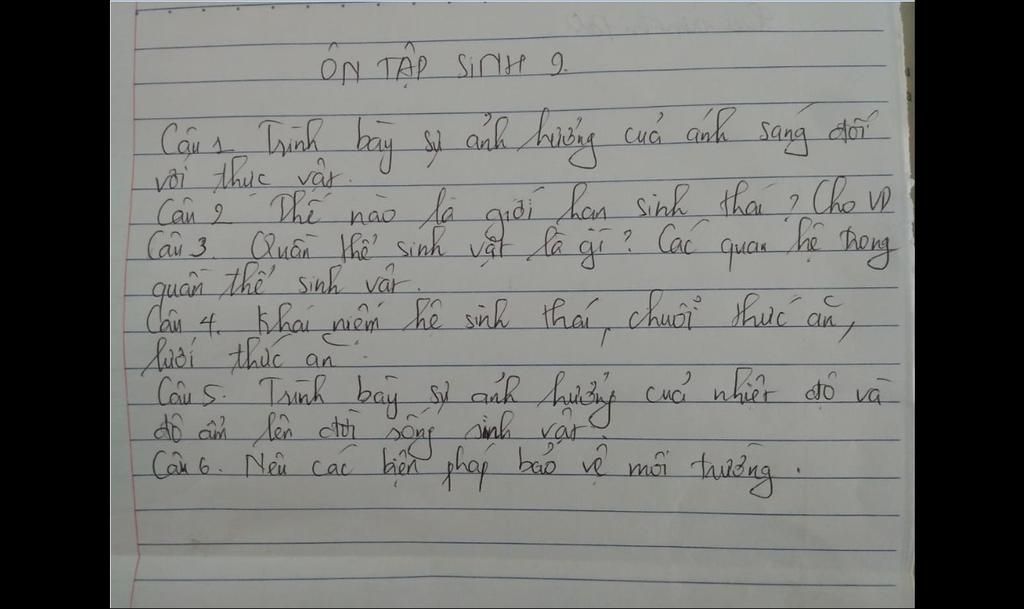 ÔN TẬP SINH 9.
Câu 1 Trình bày sự ảnh hưởng của ánh sáng đối
với thực vật.
Câu 2 Thế nào là giới hạn sinh thái? Cho VD
Câu 3. Quần thể sinh vật là gì? Các quan hệ trong
quần thể sinh vật.
Câu 4. Khái niệm hệ sinh thái, chuỗi thức ăn,
lưới thức ăn.
Câu 5. Trình bày sự ảnh hưởng của nhiệt độ và
độ ẩm lên đời sống sinh vật.
Câu 6. Nêu các biện pháp bảo vệ môi trường.